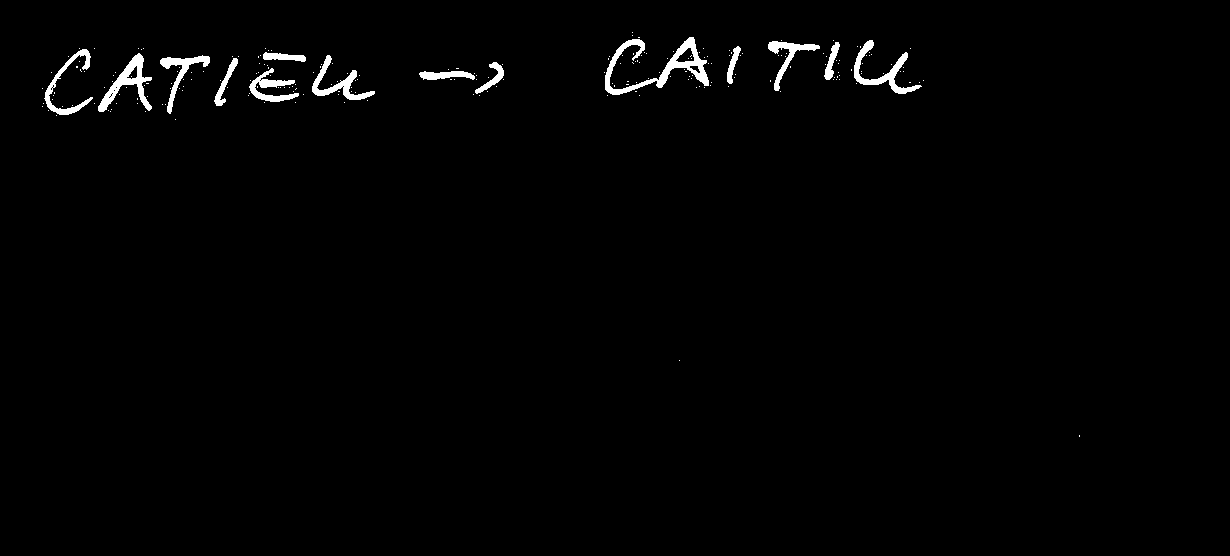 CATIEU → CAITIU